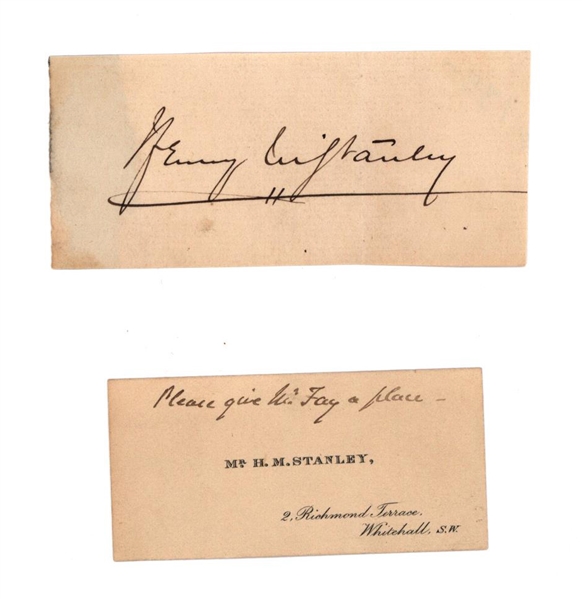 Henry M Stanley
Please give Mr. Fay a place –
MR. H. M. STANLEY,
2, Richmond Terrace,
Whitehall, S.W.